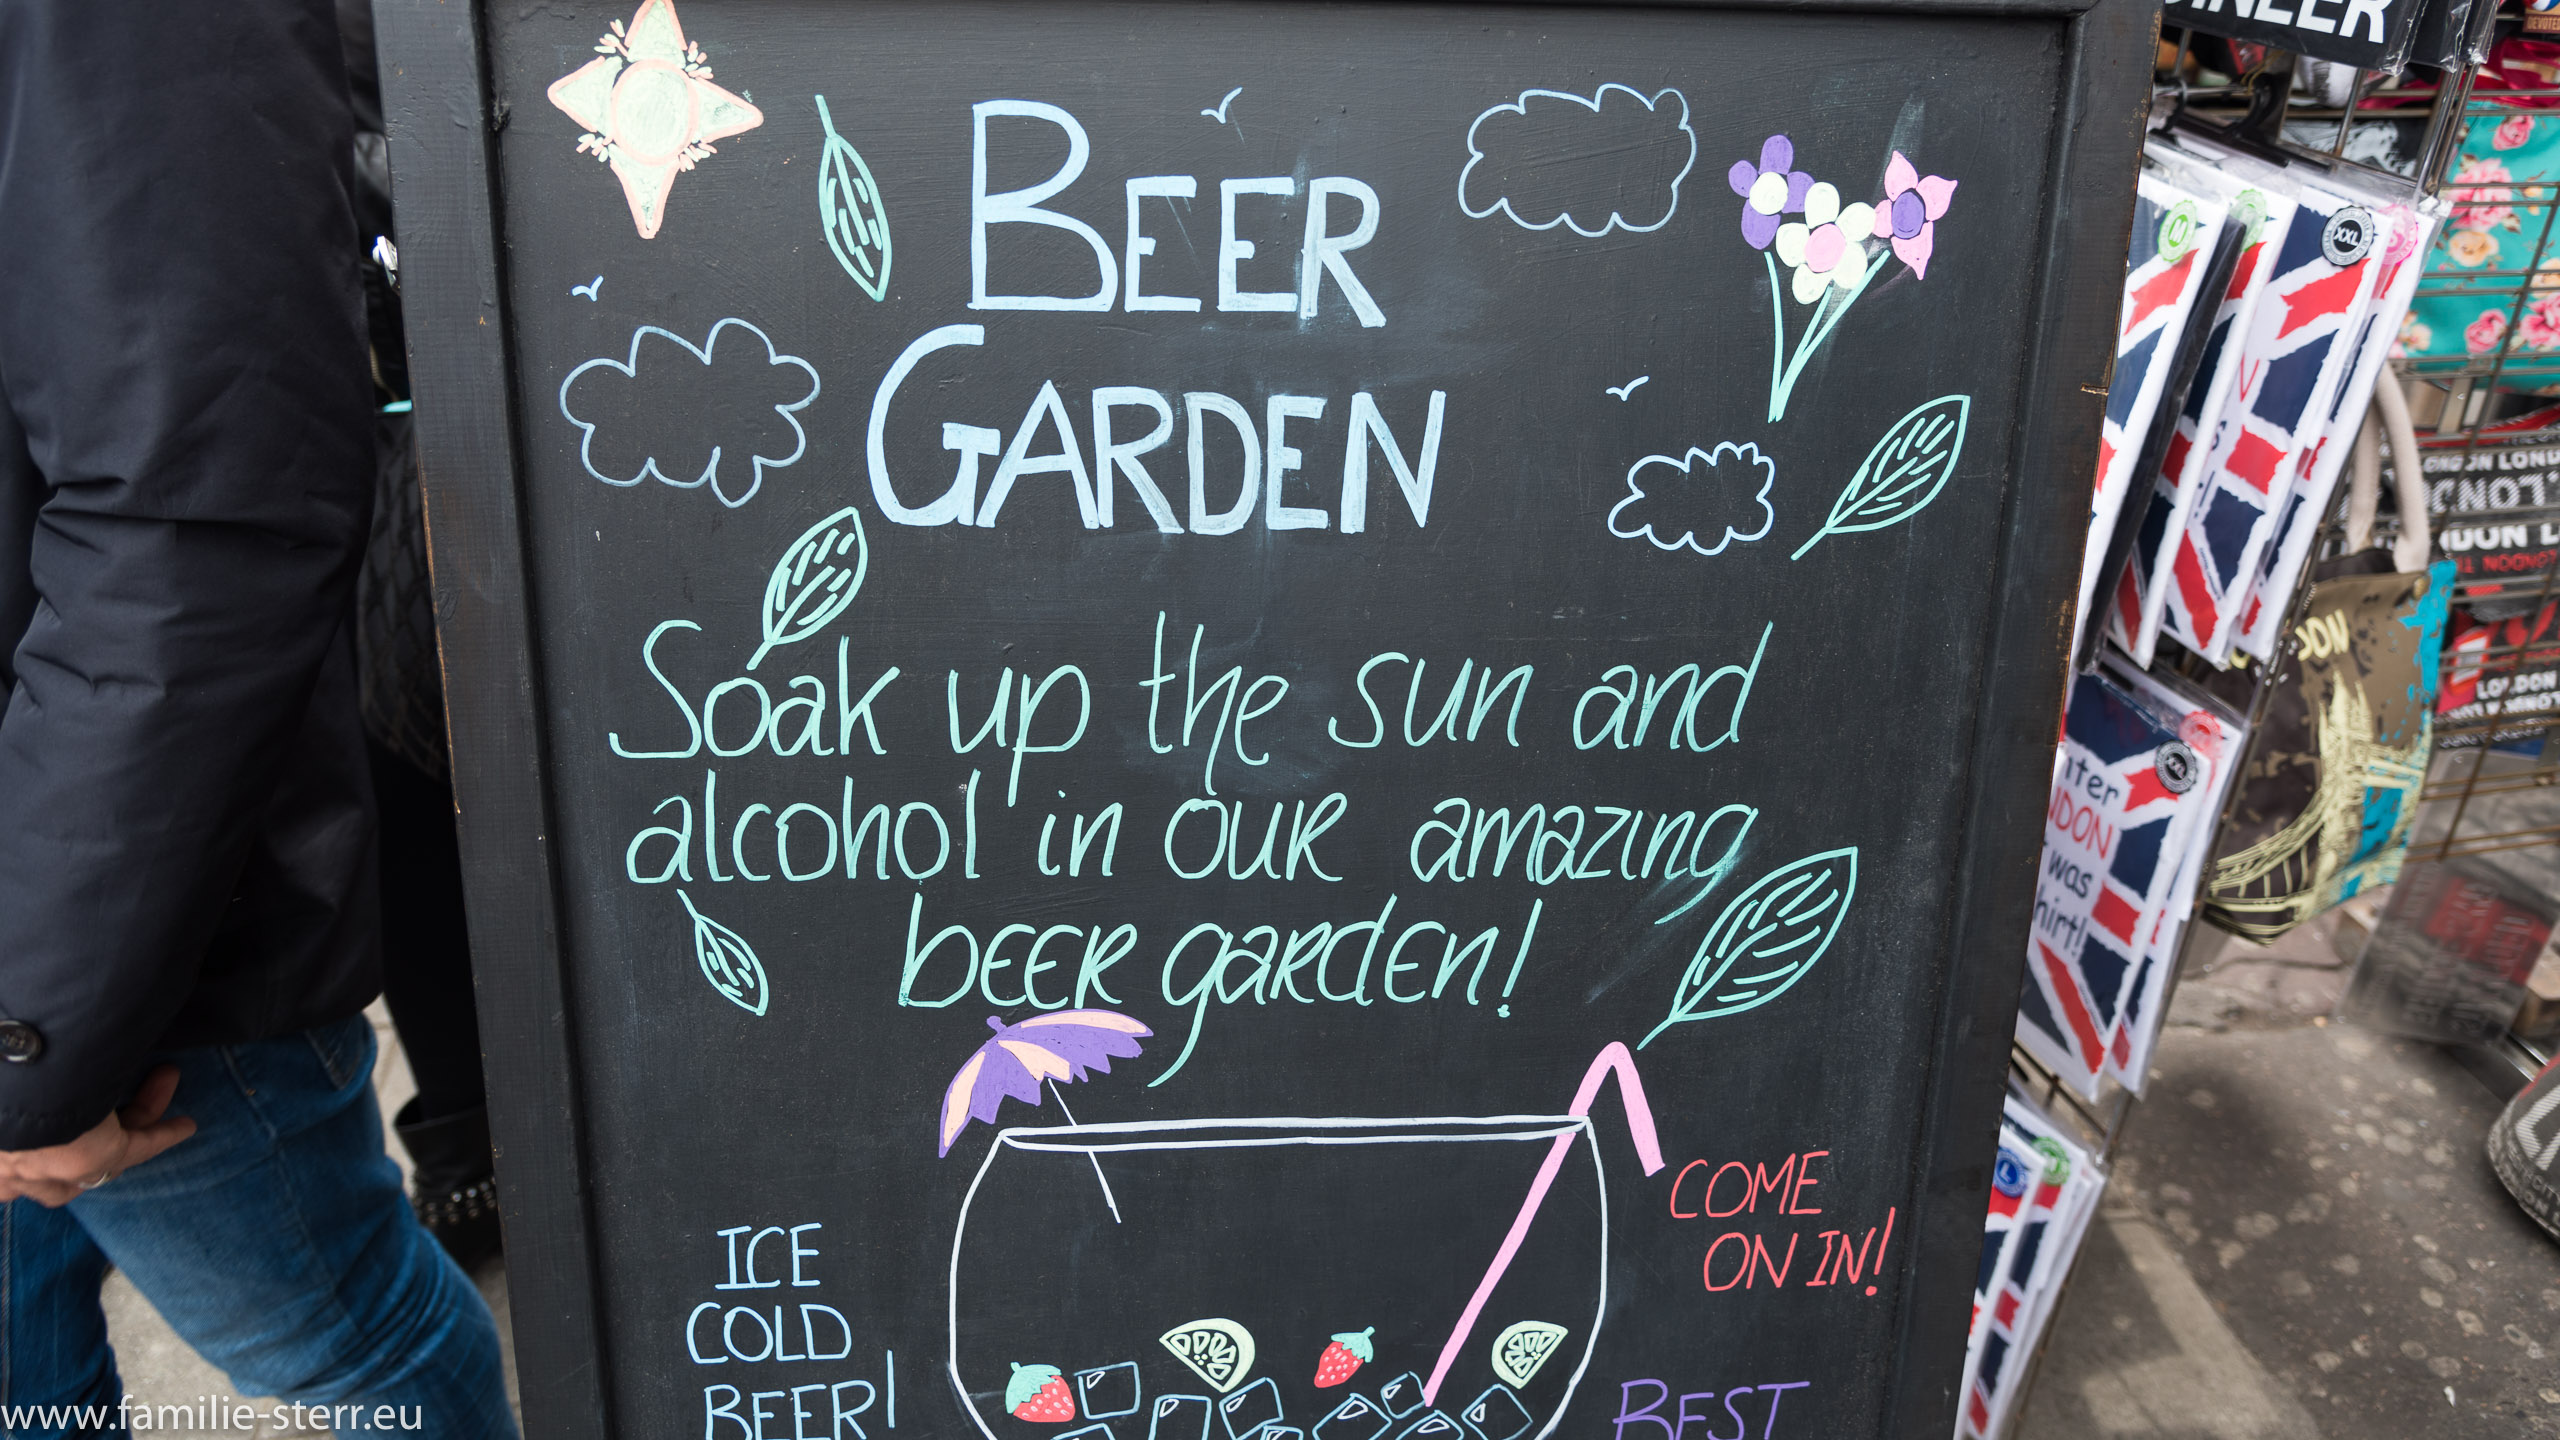 BEER
GARDEN
Soak up the sun and
alcohol in our amazing
beer garden!
COME
ON IN!
ICE
COLD
BEER!
BEST
www.familie-sterr.eu
XXL
M
XXL
L
LONDON
was